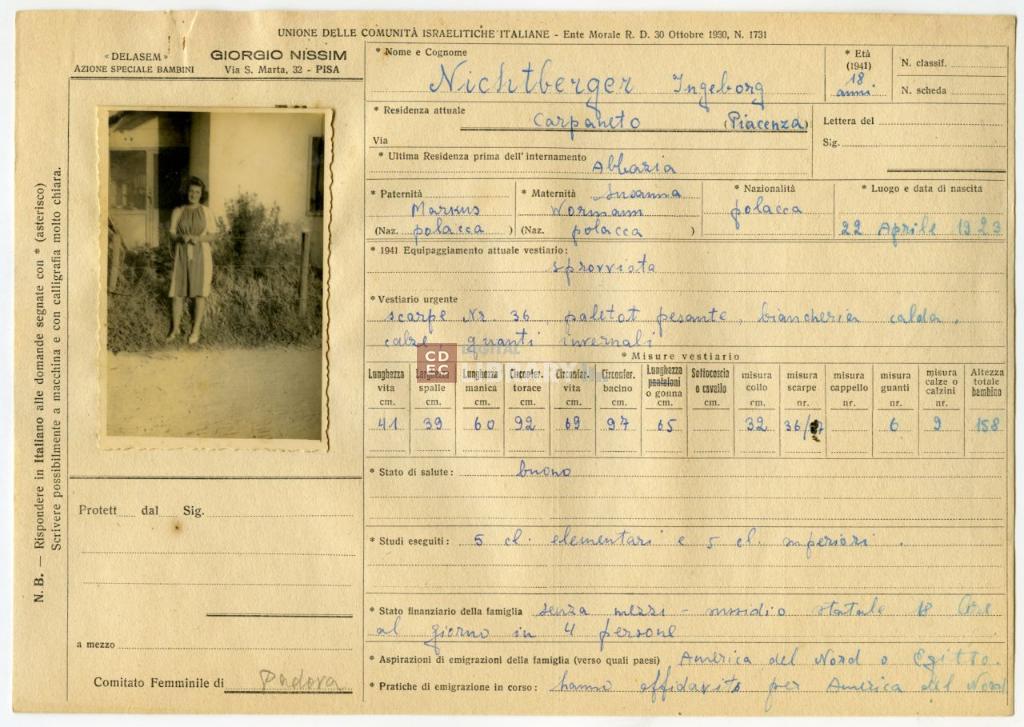 UNIONE DELLE COMUNITÀ ISRAELITICHE ITALIANE - Ente Morale R. D. 30 Ottobre 1930, N. 1731
«DELASEM»
AZIONE SPECIALE BAMBINI
GIORGIO NISSIM
Via S. Marta, 32 - PISA
N. B. — Rispondere in Italiano alle domande segnate con * (asterisco)
Scrivere possibilmente a macchina e con calligrafia molto chiara.
* Nome e Cognome
Nichtberger Ingeborg
* Età
(1941)
18
anni
N. classif.
N. scheda
* Residenza attuale
Carpaneto (Piacenza)
Via
Lettera del
Sig.
* Ultima Residenza prima dell'internamento
Abbazia
* Paternità
Markus
(Naz. polacca )
* Maternità Susanna
Wormann
(Naz. polacca )
* Nazionalità
polacca
* Luogo e data di nascita
22 Aprile 1923
* 1941 Equipaggiamento attuale vestiario:
sprovvista
* Vestiario urgente
scarpe Nr. 36, paletot pesante, biancheria calda,
calze, guanti invernali
CD
EC
DIGITAL
* Misure vestiario
Lunghezza vita cm. 41
Larghezza spalle cm. 39
Lunghezza manica cm. 60
Circonfer. torace cm. 92
Circonfer. vita cm. 69
Circonfer. bacino cm. 97
Lunghezza pantaloni o gonna cm. 65
Sottocoscia o cavallo cm.
misura collo cm. 32
misura scarpe nr. 36/37
misura cappello nr.
misura guanti nr. 6
misura calze o calzini nr. 9
Altezza totale bambino 158
* Stato di salute: buono
Protett dal Sig.
* Studi eseguiti: 5 cl. elementari e 5 cl. superiori.
* Stato finanziario della famiglia senza mezzi - sussidio statale 18 Lire
al giorno in 4 persone
a mezzo
* Aspirazioni di emigrazioni della famiglia (verso quali paesi) America del Nord o Egitto.
Comitato Femminile di Padova
* Pratiche di emigrazione in corso: hanno affidavits per America del Nord